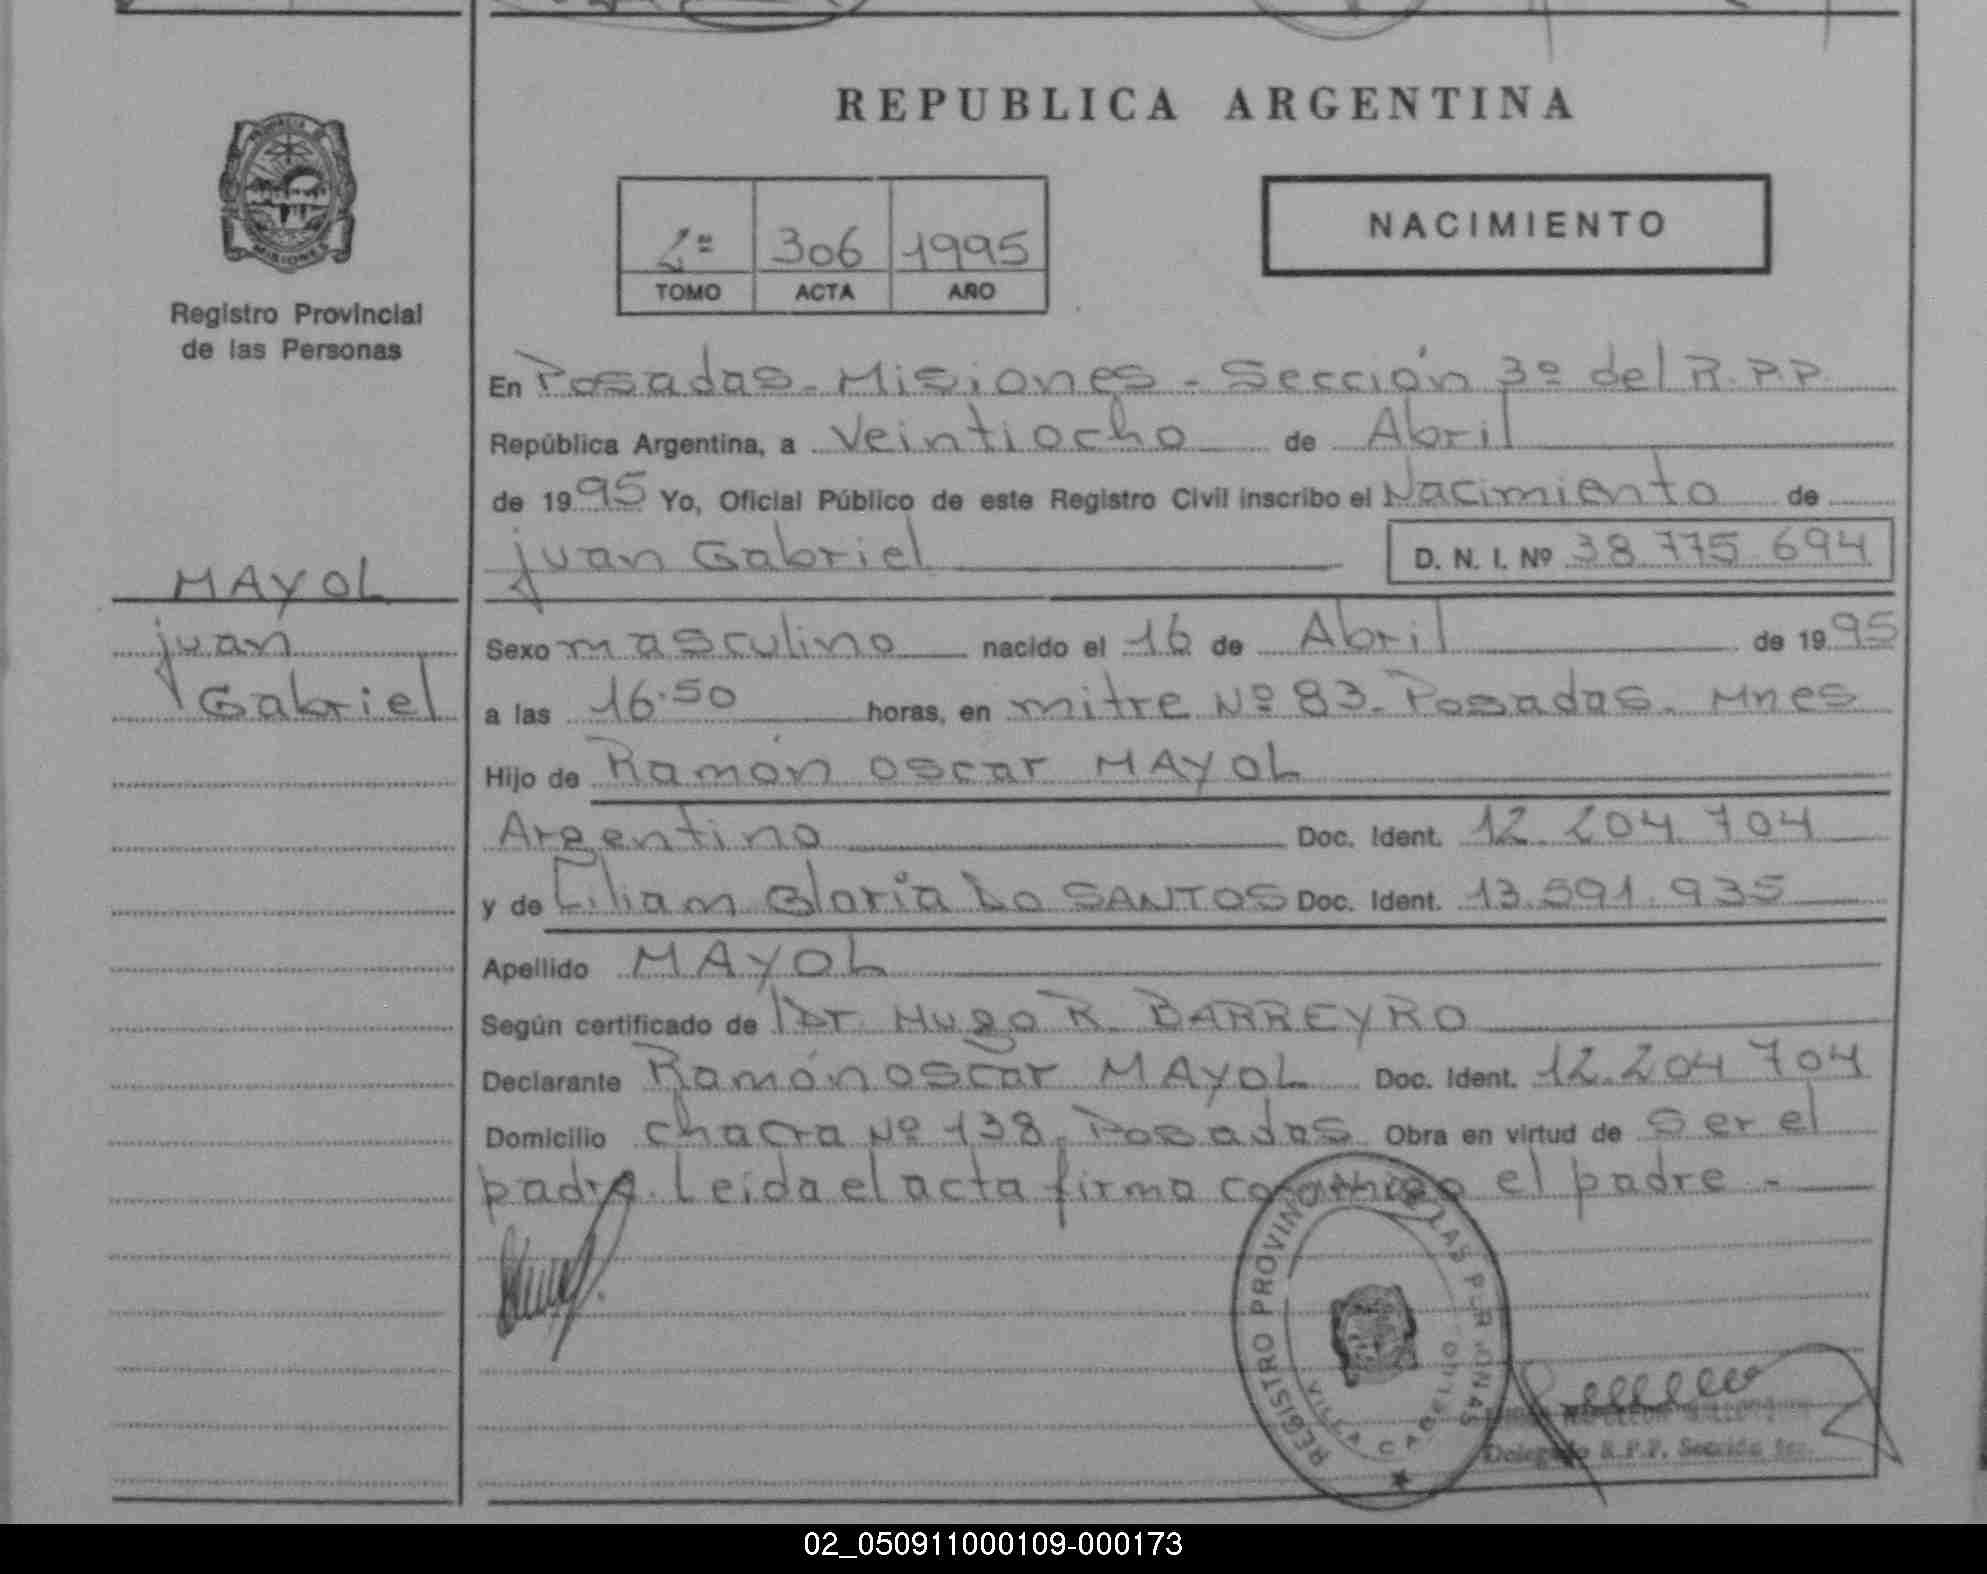 REPUBLICA ARGENTINA
PROVINCIA DE
MISIONES
Registro Provincial
de las Personas
2º 306 1995
TOMO ACTA AÑO
NACIMIENTO
En Posadas - Misiones - Sección 3º del R.P.P.
República Argentina, a Veintiocho de Abril
de 1995 Yo, Oficial Público de este Registro Civil inscribo el Nacimiento de
juan Gabriel D. N. I. Nº 38.775.694
MAYOL
juan
Gabriel
Sexo masculino nacido el 16 de Abril de 1995
a las 16.50 horas, en mitre Nº 83 - Posadas - Mnes
Hijo de Ramón oscar MAYOL
Argentino Doc. Ident. 12.204.704
y de Liliam Gloria Do SANTOS Doc. Ident. 13.591.935
Apellido MAYOL
Según certificado de Dr. Hugo R. BARREYRO
Declarante Ramón oscar MAYOL Doc. Ident. 12.204.704
Domicilio chacra Nº 138, Posadas Obra en virtud de ser el
padre. Leída el acta firma conmigo el padre -
REGISTRO PROVINCIAL DE LAS PERSONAS
VILLA CABELLO
NAPOLEON
Delegado R.P.P. Sección 3ra.
02_050911000109-000173